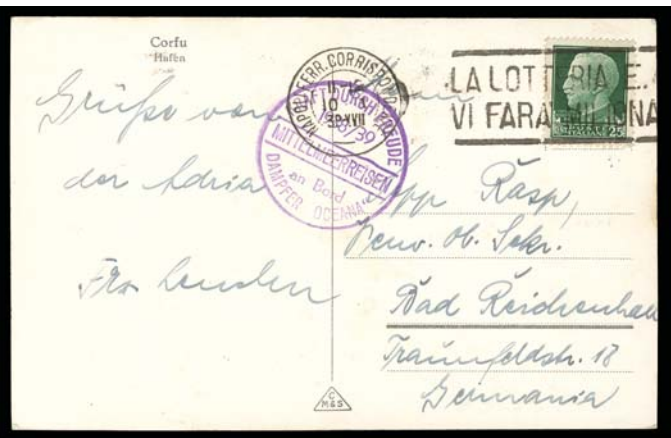 Corfu
Hafen
NAPOLI FERR. CORRISPOND
10
38 XVII
LA LOTTERIA E.
VI FARA MILIONA
25
KRAFT DURCH FREUDE
1938/39
MITTELMEERREISEN
an Bord
DAMPFER "OCEANA"
Grüße von
der Adria
Sepp Rasp,
Ob. Sekr.
Bad Reichenhall
Traunfeldstr. 18
Germania
C
M&S